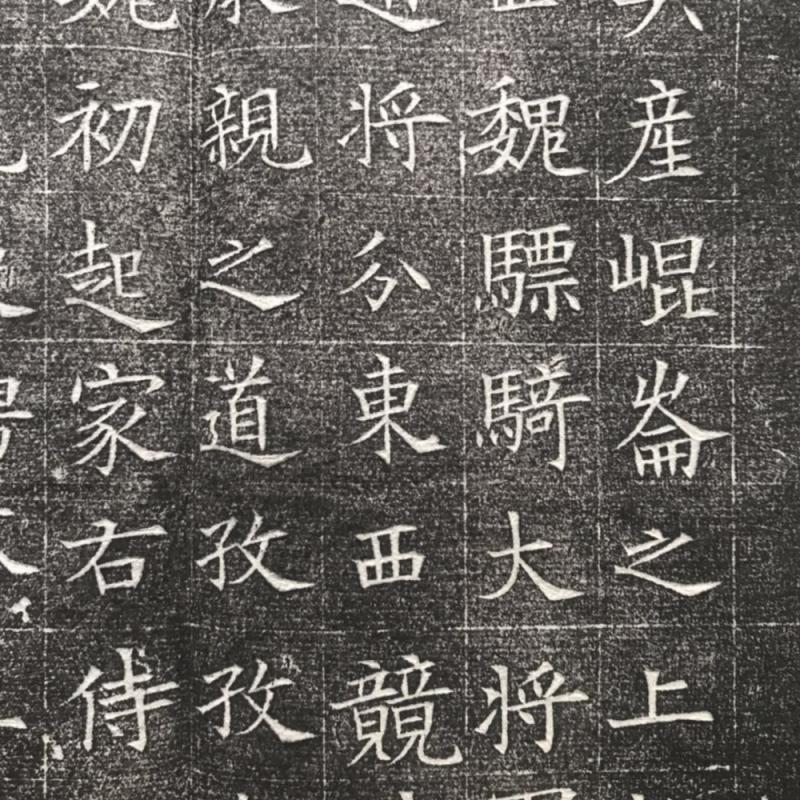 産崐崙之上
魏驃騎大将
将分東西競
親之道孜孜
初起家右侍